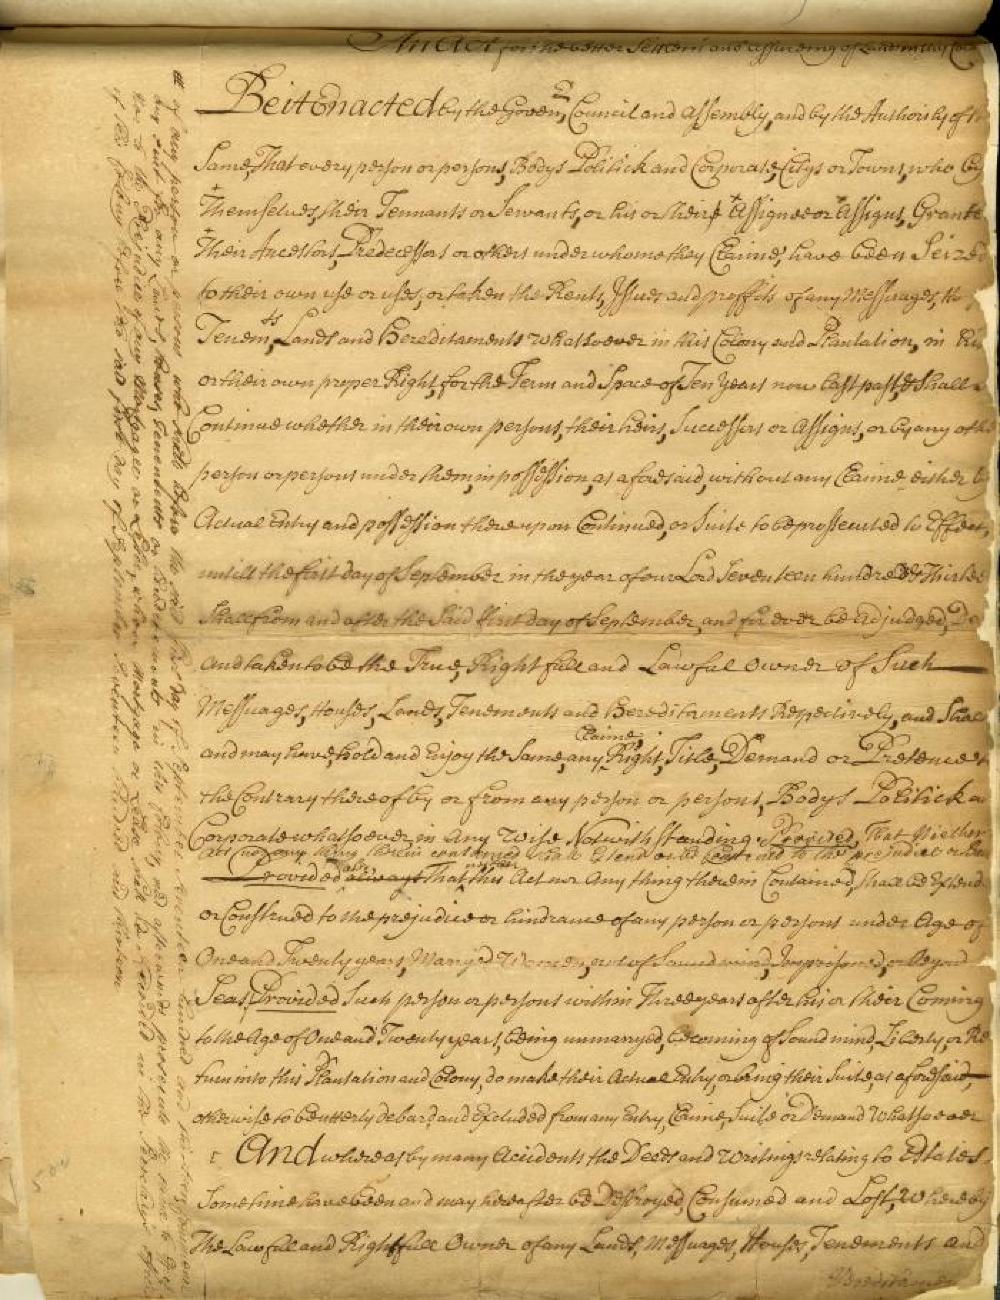 An Act for the better Settlem and assureing of Lands in this
Be it Enacted by the Govern, Council and Assembly, and by the Authority of
Same, That every person or persons, Bodys Politick and Corporate, Citys or Towns, who by
Themselves, their Tennants or Servants, or his or their Assignee or Assigns, Grante
Their Ancestors, Predecessors or others under whome they Claime, have been Seized
to their own use or uses, or taken the Rents, Issues and proffits of any Messuages,
Tenemts, Lands and Hereditaments whatsoever in this Colony and Plantation, in his
or their own proper Right, for the Term and Space of Ten Years now last past, & Shall
Continue whether in their own persons, their heirs, Successors or Assigns, or by any othe
person or persons under them, in possession, as aforesaid, without any Claime either by
Actual Entry and possession thereupon Continued, or Suite to be prossecuted to Effect,
untill the first day of September in the year of our Lord Seventeen hundred & Thirtee
Shall from and after the Said first day of September, and for ever be adjudged,
and taken to be the True, Rightfull and Lawful Owner of Such
Messuages, Houses, Lands, Tenements and Hereditaments Respectively, and Shall
Claime,
and may have, hold and Enjoy the Same, any Right, Title, Demand or Pretence
the Contrary thereof by or from any person or persons, Bodys Politick
Corporate whatsoever, in Any Wise Notwithstanding. Provided, That Neither
Act nor any thing therein contained Shall Extend or be Construed to the prejudice or
Provided always That this Act nor Any thing therein Contained, Shall be Extend
or Construed to the prejudice or hindrance of any person or persons under Age of
One and Twenty years, Marryd Women, not of Sound mind, Imprisoned, or beyond
Seas, Provided Such person or persons within Three years after his or their Coming
to the Age of One and Twenty years, being unmarryed, becoming of Sound mind, Liberty, or Re
turn into this Plantation and Colony, do make their Actual Entry, or bring their Suite, as aforesaid,
otherwise to be utterly debarrd and Excluded from any Entry, Claime, Suite or Demand Whatsoever
And whereas by many Accidents the Deeds and Writings relating to Estates
Sometime have been and may hereafter be Destroyed, Consumed and Lost, Whereby
The Lawfull and Rightfull Owner of any Lands, Messuages, Houses, Tenements and
of any person or persons who shall before the said first day of September Seventeen hundred and thirteen
any suit for any Lands, houses, tenements or hereditaments in this Colony and afterwards prosecute the same to Effect
nor to the Prejudice of any Mortgagee or
of this Colony before the said first day of September Seventeen hundred and thirteen